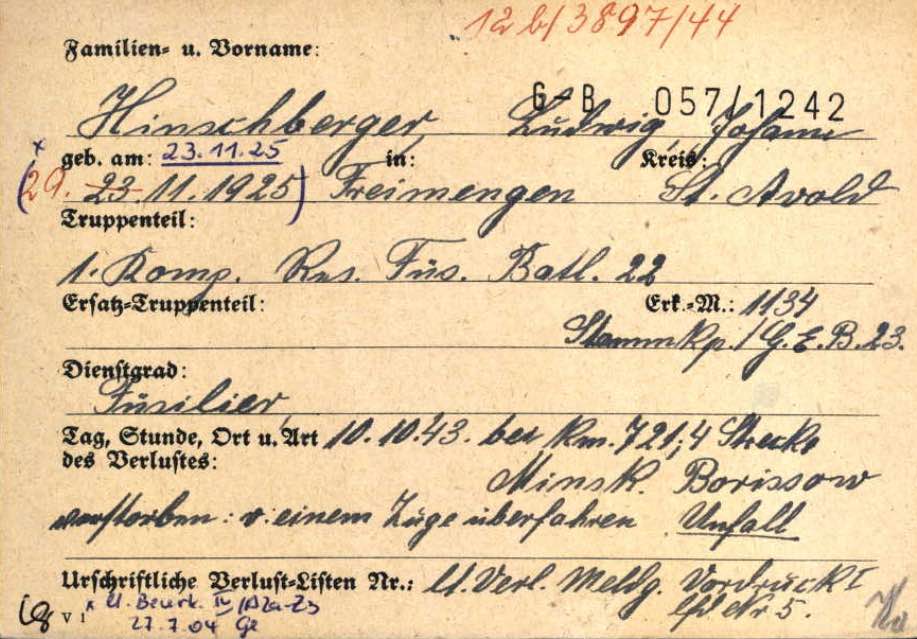 12 b/3897/44
Familien- u. Vorname:
G-B 057/1242
Hinschberger, Ludwig, Johann
geb. am: 23.11.25 in: Kreis:
x (29. 23.11.1925) Freimengen St. Avold
Truppenteil:
1. Komp. Res. Füs. Batl. 22
Ersatz-Truppenteil: Erk.-M.: 1134
Stammkp./G.E.B.23.
Dienstgrad:
Füsilier
Tag, Stunde, Ort u. Art 10.10.43. bei km. 721,4 Strecke
des Verlustes: Minsk. Borissow
verstorben: v. einem Zuge überfahren Unfall
Urschriftliche Verlust-Listen Nr.: lt. Verl. Meldg. Vordruck I
lfd Nr 5.
V 1 x lt. Beurk. IV
27.7.04 Ge